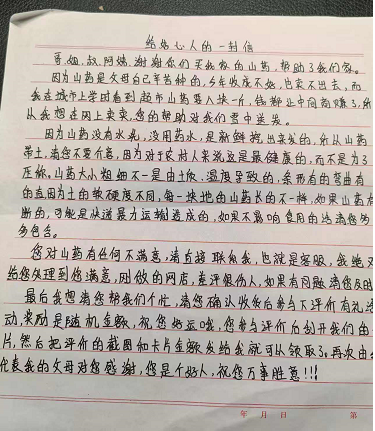 给好心人的一封信
哥,姐,叔,阿姨,谢谢你们买我家的山药,帮助了我们家。
因为山药是父母自己辛苦种的,今年收成不好,也卖不出去,而
我在城市上学时看到超市山药要八块一斤,钱都让中间商赚了,所
从我想在网上卖卖,您的帮助对我们雪中送炭。
因为山药没有水洗,没用药水,是新鲜挖出来发的,所从山药
带土,请您不要介意,因为对于农村人来说这是最健康的,而不是为了
压称。山药大小粗细不一是由土质、温度导致的,条形有的弯曲有
的直因为土的软硬度不同,每一块地的山药长的不一样,如果山药有
断的,可能是快递暴力运输造成的,如果不影响食用的话请您
多包含。
您对山药有任何不满意,请直接联系我,也就是客服,我绝对
给您处理到您满意,刚做的网店,差评很伤人,如果有问题请您及时
最后我想请您帮我们个忙,请您确认收货后参与下评价有礼活
动,奖励是随机金额,祝您好运哦,您参与评价后刮开我们的
片,然后把评价的截图和卡片金额发给我就可以领取了,再次由
代表我的父母对您感谢,您是个好人,祝您万事胜意!!!
年 月 日 第